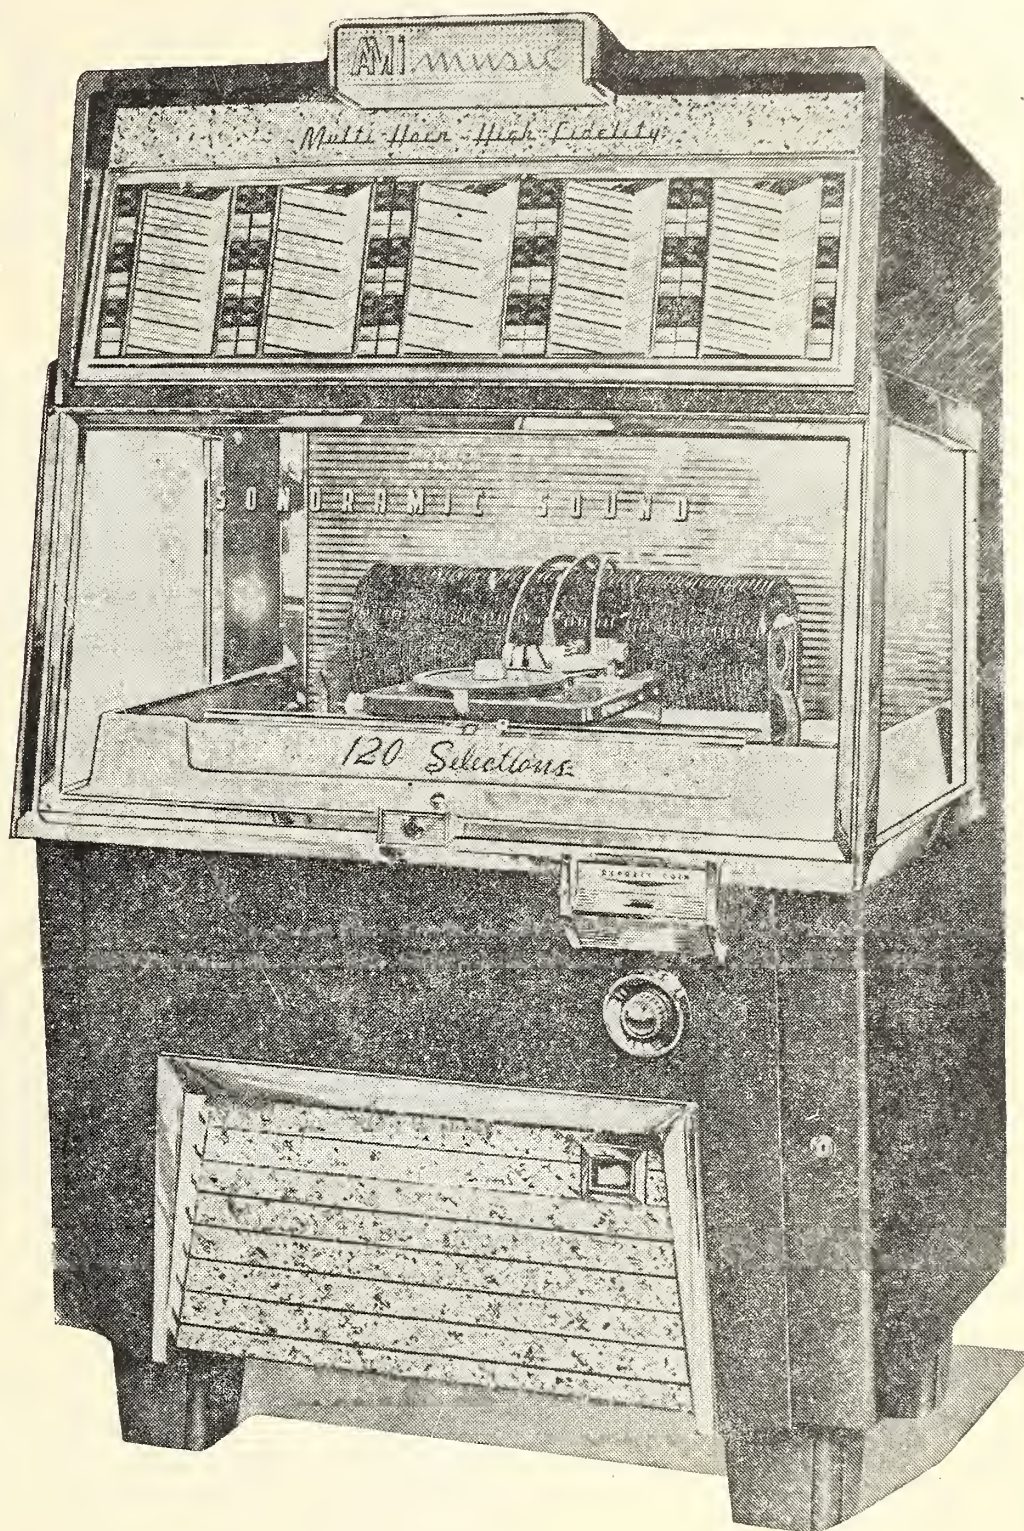 AMI music
Multi-Horn High Fidelity
SONORAMIC SOUND
120 Selections
DEPOSIT COIN